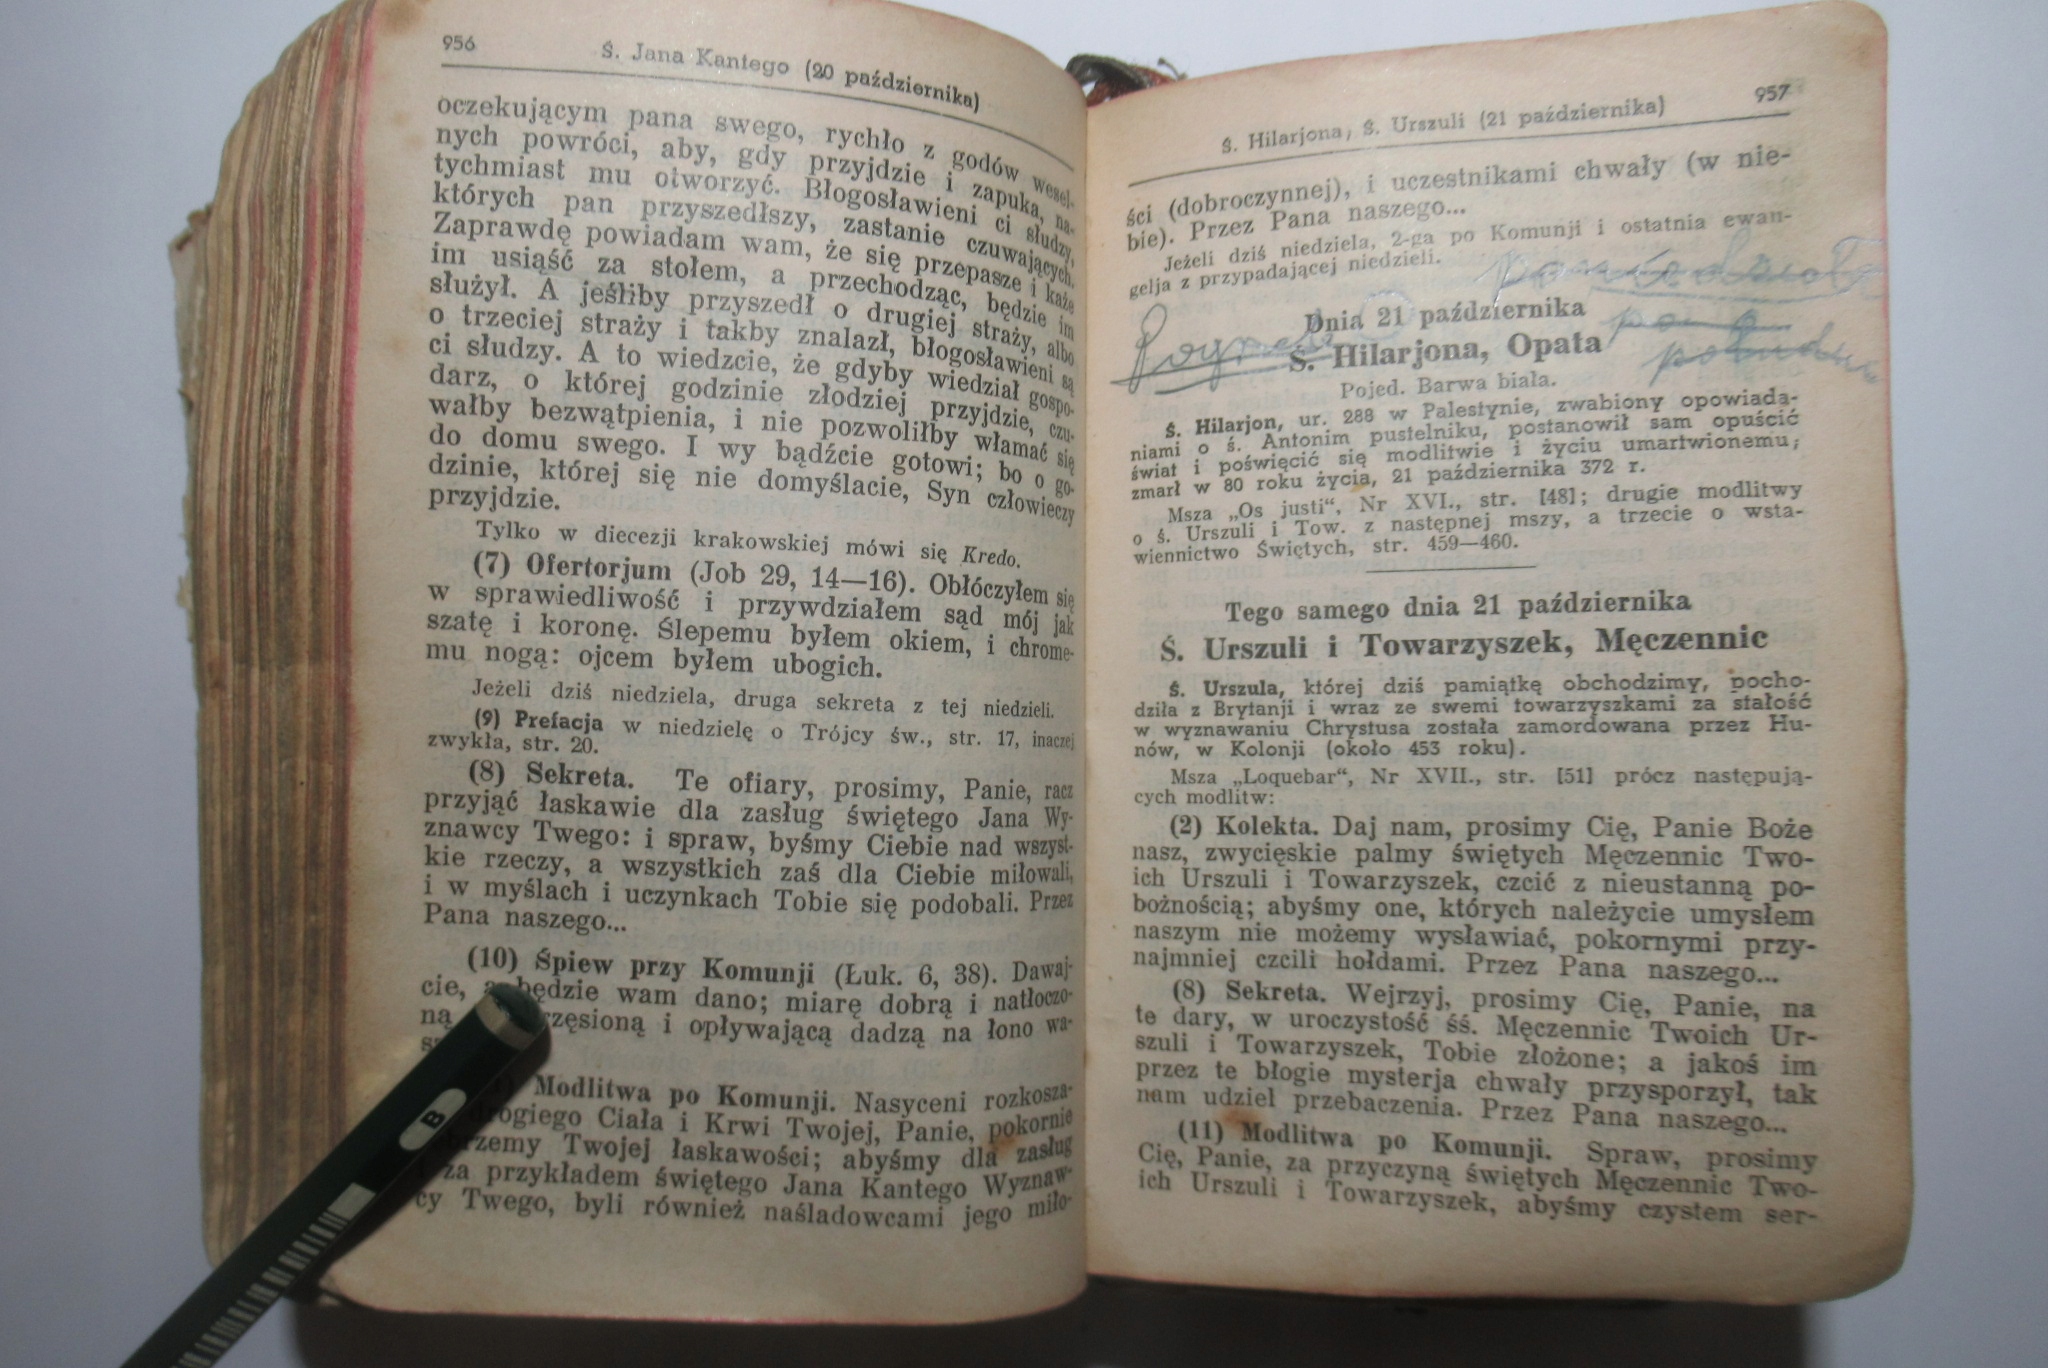 956
Ś. Jana Kantego (20 października)
oczekującym pana swego, rychło z godów wesel-
nych powróci, aby, gdy przyjdzie i zapuka, na-
tychmiast mu otworzyć. Błogosławieni ci słudzy,
których pan przyszedłszy, zastanie czuwających.
Zaprawdę powiadam wam, że się przepasze i każe
im usiąść za stołem, a przechodząc, będzie im
służył. A jeśliby przyszedł o drugiej straży, albo
o trzeciej straży i takby znalazł, błogosławieni są
ci słudzy. A to wiedzcie, że gdyby wiedział gospo-
darz, o której godzinie złodziej przyjdzie, czu-
wałby bezwątpienia, i nie pozwoliłby włamać się
do domu swego. I wy bądźcie gotowi; bo o go-
dzinie, której się nie domyślacie, Syn człowieczy
przyjdzie.
Tylko w diecezji krakowskiej mówi się Kredo.
(7) Ofertorjum (Job 29, 14—16). Obłóczyłem się
w sprawiedliwość i przywdziałem sąd mój jak
szatę i koronę. Ślepemu byłem okiem, i chrome-
mu nogą: ojcem byłem ubogich.
Jeżeli dziś niedziela, druga sekreta z tej niedzieli.
(9) Prefacja w niedzielę o Trójcy św., str. 17, inaczej
zwykła, str. 20.
(8) Sekreta. Te ofiary, prosimy, Panie, racz
przyjąć łaskawie dla zasług świętego Jana Wy-
znawcy Twego: i spraw, byśmy Ciebie nad wszyst-
kie rzeczy, a wszystkich zaś dla Ciebie miłowali,
i w myślach i uczynkach Tobie się podobali. Przez
Pana naszego...
(10) Śpiew przy Komunji (Łuk. 6, 38). Dawaj-
cie, a będzie wam dano; miarę dobrą i natłoczo-
ną rzęsioną i opływającą dadzą na łono wa-
Modlitwa po Komunji. Nasyceni rozkosza-
drogiego Ciała i Krwi Twojej, Panie, pokornie
Twojej łaskawości; abyśmy dla zasług
i za przykładem świętego Jana Kantego Wyznaw-
cy Twego, byli również naśladowcami jego miło-
957
Ś. Hilarjona, Ś. Urszuli (21 października)
ści (dobroczynnej), i uczestnikami chwały (w nie-
bie). Przez Pana naszego...
Jeżeli dziś niedziela, 2-ga po Komunji i ostatnia ewan-
gelja z przypadającej niedzieli.
Dnia 21 października
po
Ś. Hilarjona, Opata
Pojed. Barwa biała.
Ś. Hilarjon, ur. 288 w Palestynie, zwabiony opowiada-
niami o ś. Antonim pustelniku, postanowił sam opuścić
świat i poświęcić się modlitwie i życiu umartwionemu;
zmarł w 80 roku życia, 21 października 372 r.
Msza „Os justi“, Nr XVI., str. [48]; drugie modlitwy
o ś. Urszuli i Tow. z następnej mszy, a trzecie o wsta-
wiennictwo Świętych, str. 459—460.
Tego samego dnia 21 października
Ś. Urszuli i Towarzyszek, Męczennic
Ś. Urszula, której dziś pamiątkę obchodzimy, pocho-
dziła z Brytanji i wraz ze swemi towarzyszkami za stałość
w wyznawaniu Chrystusa została zamordowana przez Hu-
nów, w Kolonji (około 453 roku).
Msza „Loquebar“, Nr XVII., str. [51] prócz następują-
cych modlitw:
(2) Kolekta. Daj nam, prosimy Cię, Panie Boże
nasz, zwycięskie palmy świętych Męczennic Two-
ich Urszuli i Towarzyszek, czcić z nieustanną po-
bożnością; abyśmy one, których należycie umysłem
naszym nie możemy wysławiać, pokornymi przy-
najmniej czcili hołdami. Przez Pana naszego...
(8) Sekreta. Wejrzyj, prosimy Cię, Panie, na
te dary, w uroczystość śś. Męczennic Twoich Ur-
szuli i Towarzyszek, Tobie złożone; a jakoś im
przez te błogie mysterja chwały przysporzył, tak
nam udziel przebaczenia. Przez Pana naszego...
(11) Modlitwa po Komunji. Spraw, prosimy
Cię, Panie, za przyczyną świętych Męczennic Two-
ich Urszuli i Towarzyszek, abyśmy czystem ser-
B